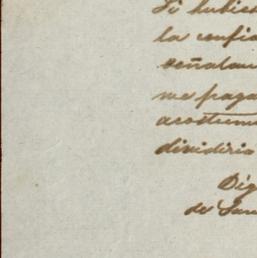 Si hubie
la confia
señalan
me paga
acostum
dividiria
Dig
de San